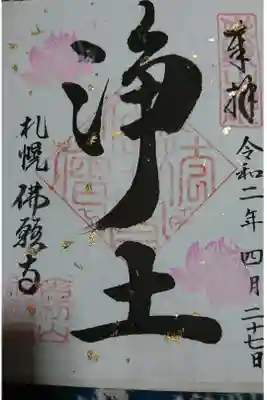 奉拝
令和二年四月二十七日
浄土
札幌佛願寺